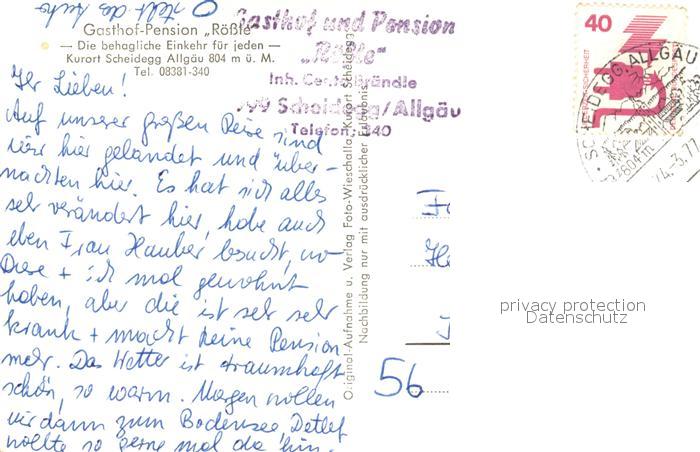 Gasthof-Pension „Rößle"
— Die behagliche Einkehr für jeden —
Kurort Scheidegg Allgäu 804 m ü. M.
Tel. 08381-340
Gasthof und Pension
„Rößle"
Scheidegg/Allgäu
Telefon 340
40
SCHEIDEGG, ALLGÄU
Ihr Lieben!
Auf unserer großen Reise sind
wir hier gelandet und über-
nachten hier. Es hat sich alles
sehr verändert hier, habe auch
eben Frau Hauber besucht, wo
+ ich mal gewohnt
haben, aber die ist sehr sehr
krank + macht keine Pension
mehr. Das Wetter ist traumhaft
schön, so warm. Morgen wollen
wir dann zum Bodensee, Detlef
wollte so gerne mal da hin.
Original-Aufnahme u. Verlag Foto-Wieschalla, Kurort Scheidegg
Nachbildung nur mit ausdrücklicher Erlaubnis
56
privacy protection
Datenschutz